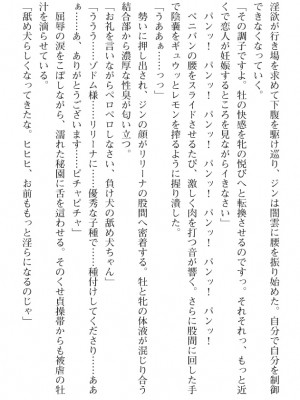 淫欲が行き場を求めて下腹を駆け巡り、ジンは闇雲に腰を振り始めた。自分で自分を制御
できなくなっていく。
「その調子ですよ。牡の快感を牝の悦びへと転換させるのです。それそれっ、もっと近
くで恋人が妊娠するところを見ながらイきなさい」
パンッ！　パンッ！　パンッ！　パンッ！
ペニバンの腰をスライドさせるたび、激しく肉を打つ音が響く。さらに股間に回した手
で陰嚢をギュウッとレモンを搾るように握り潰した。
「うあぁぁ……っっ」
勢いに押し出され、ジンの顔がリリーナの股間へ密着する。牡と牝の体液が混じり合う
結合部から濃厚な性臭が匂い立つ。
「お礼を言いながらペロペロしなさい、負け犬の舐め犬ちゃん」
「うぅう……ゾドム様……リリーナに……優秀な子種で……種付けしてくださり……ああ
ぁ……あ、ありがとうございます……ピチャピチャ」
屈辱の涙をこぼしながら、濡れた秘園に舌を這わせる。そのくせ貞操帯からも被虐の牡
汁を滴らせている。
「舐め犬らしくなってきたな。ヒヒヒ、お前ももっと淫らになるのじゃ」